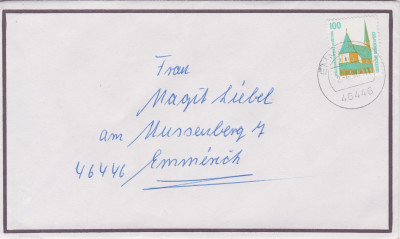 100
46446
Frau
Magit Liebel
am Mussenberg 7
46446 Emmerich